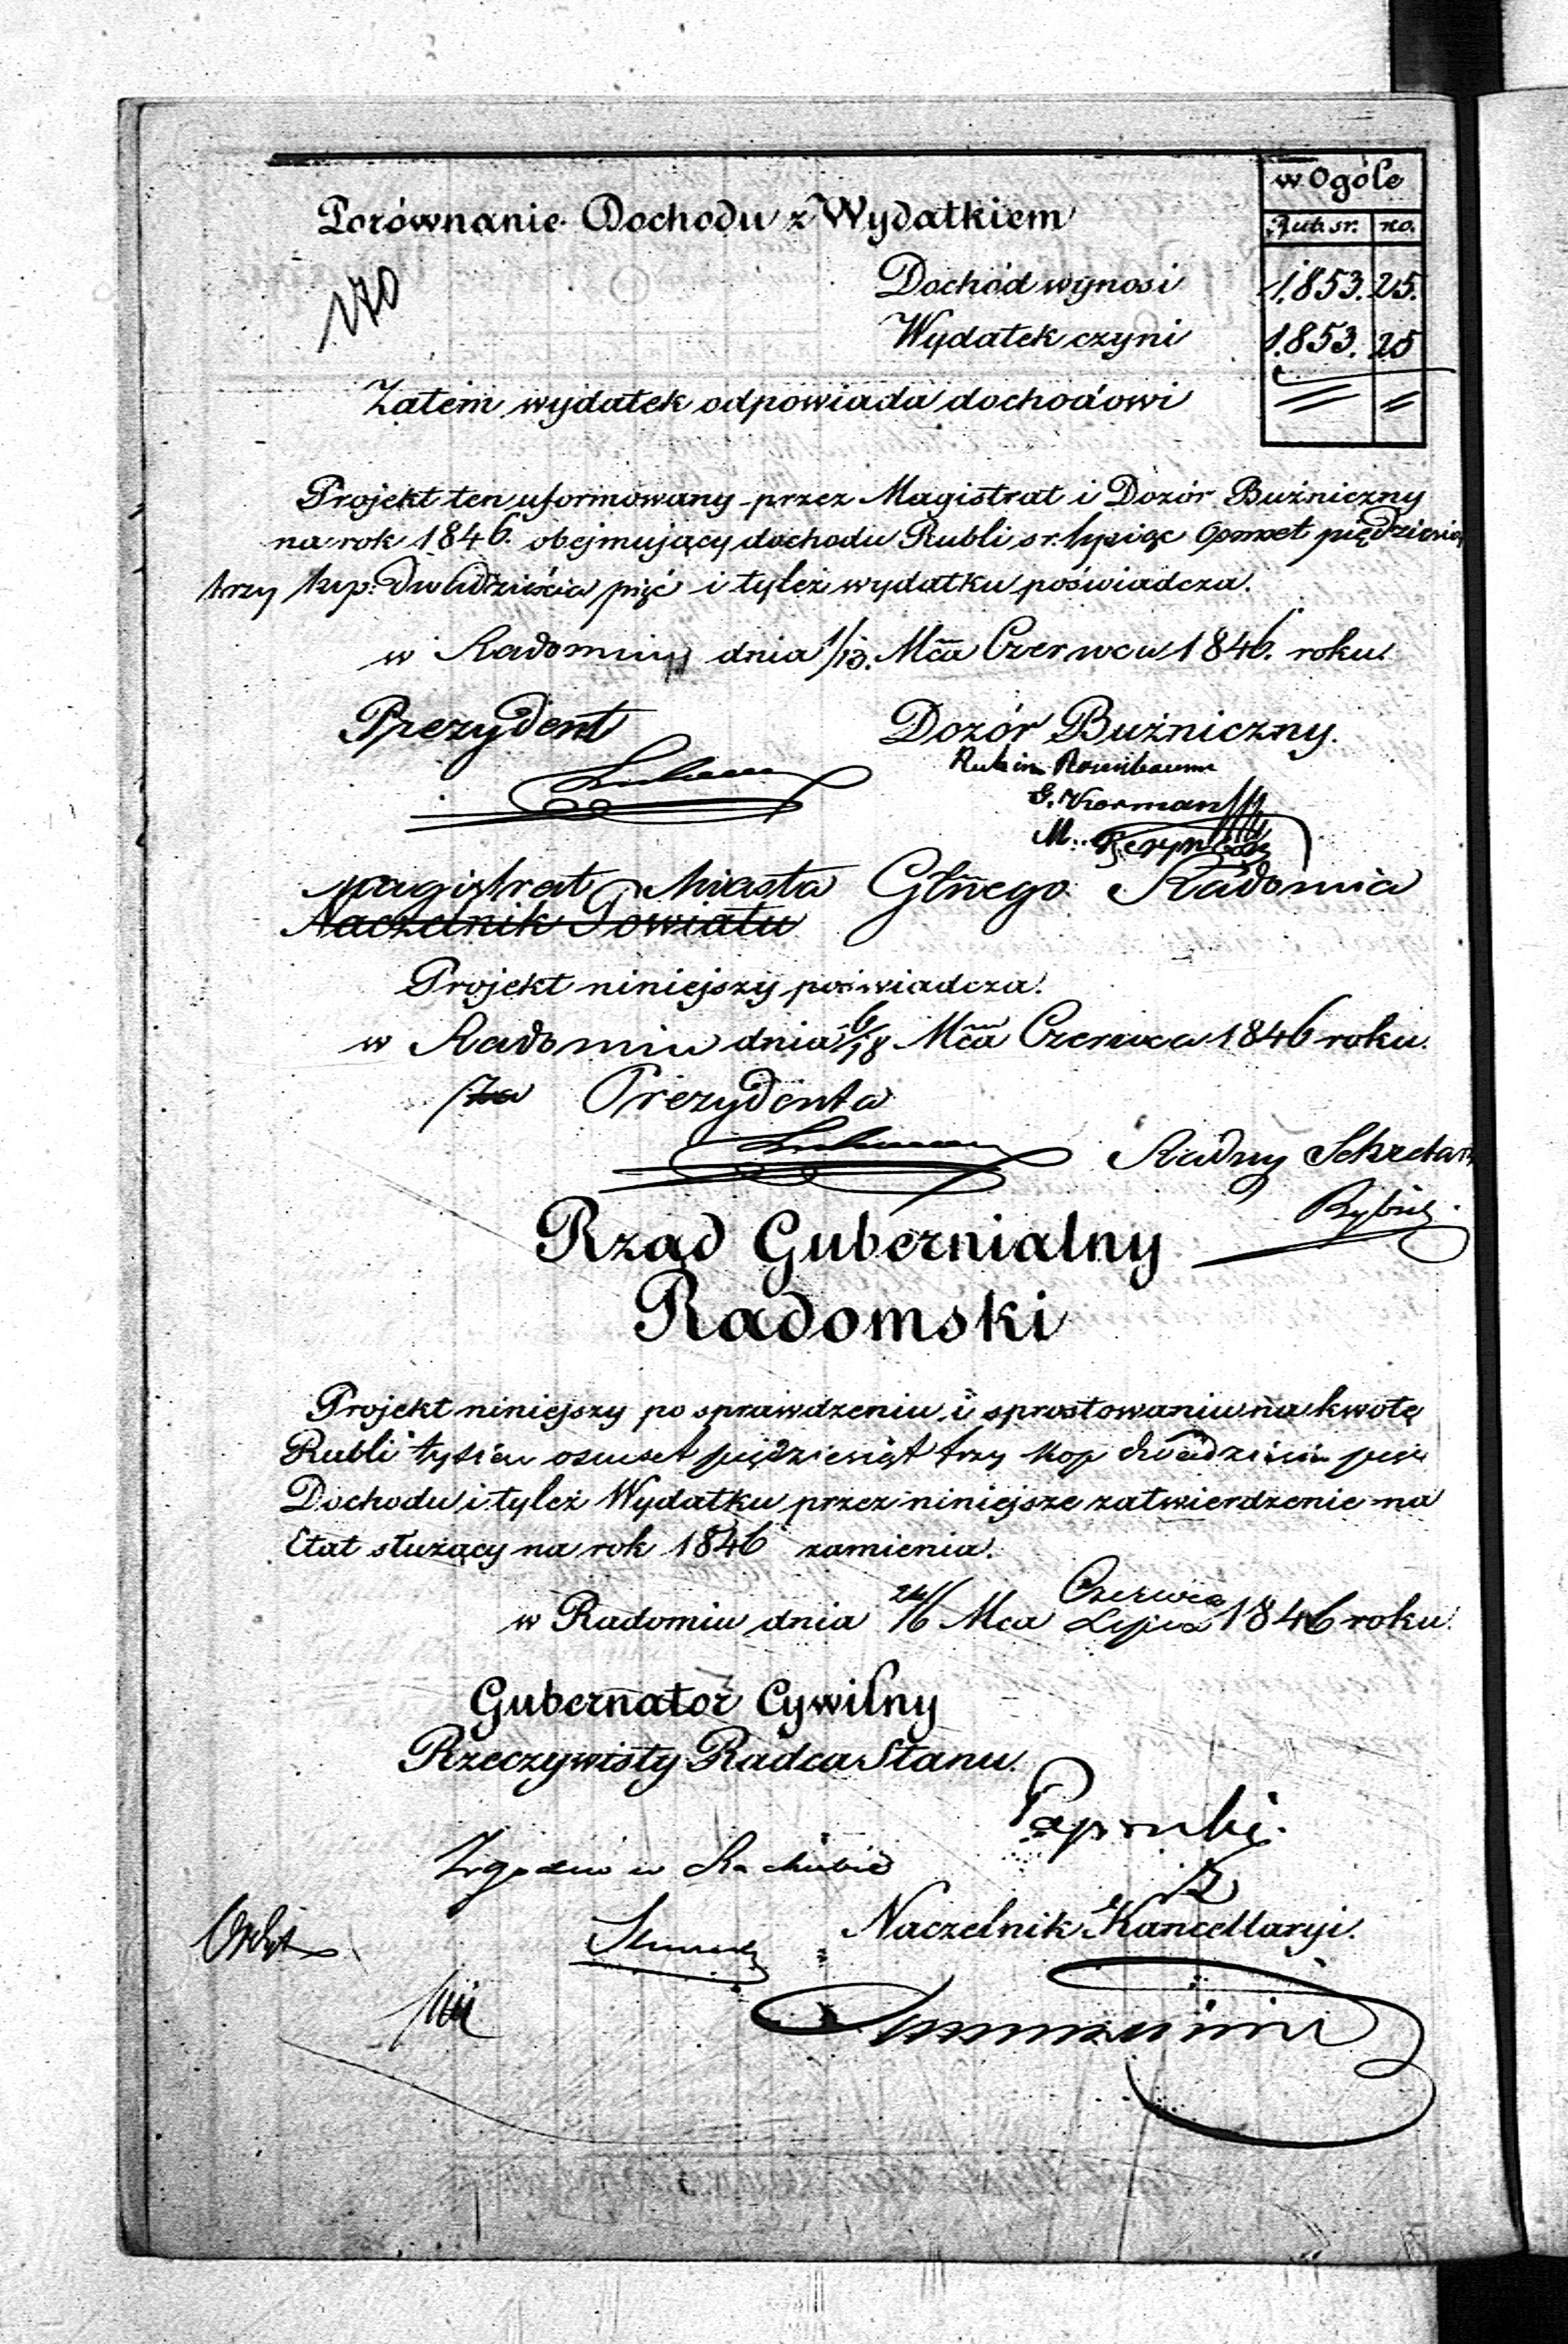 w Ogóle
Rub. sr. ko.
Porównanie Dochodu z Wydatkiem
170
Dochód wynosi 1.853. 25.
Wydatek czyni 1.853. 25
Zatem wydatek odpowiada dochodowi
Projekt ten uformowany przez Magistrat i Dozór Buźniczny
na rok 1846. obejmujący dochodu Rubli sr. tysiąc Ośmset pięćdziesiąt
trzy kop: dwadzieścia pięć i tyleż wydatku poświadcza.
w Radomiu dnia 1/13. Mca Czerwca 1846. roku.
Prezydent Dozór Buźniczny.
Rubin Rosenbaum
G. Korman
M.
Magistrat Miasta Głnego Radomia
Naczelnik Powiatu
Projekt niniejszy poświadcza.
w Radomiu dnia 6/18 Mca Czerwca 1846 roku.
za Prezydenta
Radny Sekretarz
Rząd Gubernialny
Radomski
Projekt niniejszy po sprawdzeniu i sprostowaniu na kwotę
Rubli tysiąc osmset pięćdziesiąt trzy kop dwadzieścia pięć
Dochodu i tyleż Wydatku przez niniejsze zatwierdzenie na
Etat służący na rok 1846 zamienia.
w Radomiu dnia 24/6 Mca Czerwca Lipca 1846 roku.
Gubernator Cywilny
Rzeczywisty Radca Stanu.
Zgodno w Rachubie
Naczelnik Kancellaryi.